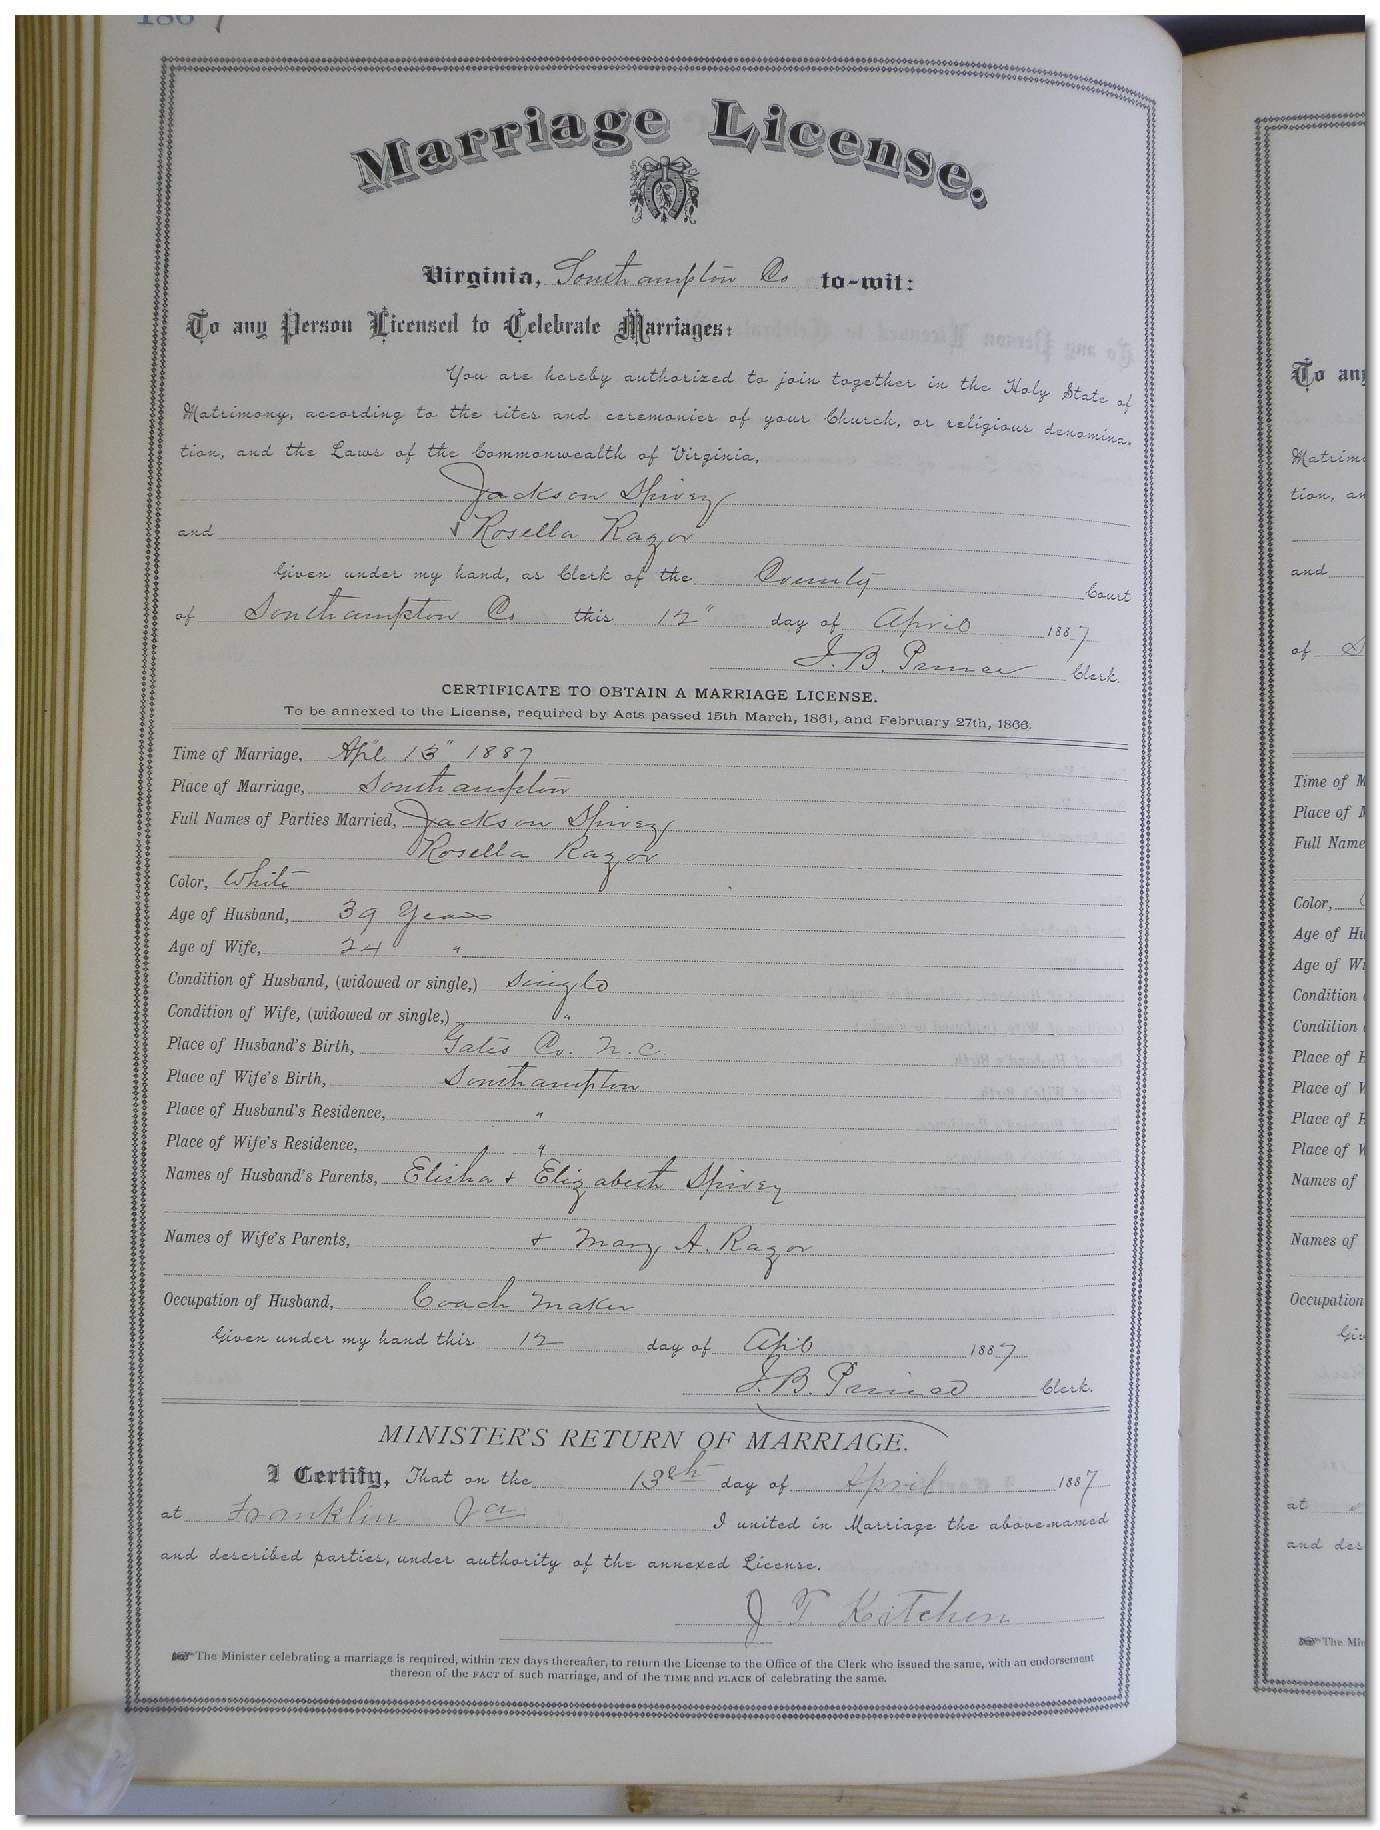 1887
Marriage License.
Virginia, Southampton Co to-wit:
To any Person Licensed to Celebrate Marriages:
You are hereby authorized to join together in the Holy State of
Matrimony, according to the rites and ceremonies of your Church, or religious denomina-
tion, and the Laws of the Commonwealth of Virginia,
Jackson Spivey
and Rosella Razor
Given under my hand, as Clerk of the County Court
of Southampton Co this 12" day of April 1887
J. B. Prince Clerk.
CERTIFICATE TO OBTAIN A MARRIAGE LICENSE.
To be annexed to the License, required by Acts passed 15th March, 1861, and February 27th, 1866.
Time of Marriage, Apl 13" 1887
Place of Marriage, Southampton
Full Names of Parties Married, Jackson Spivey
Rosella Razor
Color, White
Age of Husband, 39 Years
Age of Wife, 24 "
Condition of Husband, (widowed or single,) Single
Condition of Wife, (widowed or single,) "
Place of Husband's Birth, Gates Co. N.C.
Place of Wife's Birth, Southampton
Place of Husband's Residence, "
Place of Wife's Residence, "
Names of Husband's Parents, Elisha + Elizabeth Spivey
Names of Wife's Parents, + Mary A. Razor
Occupation of Husband, Coach Maker
Given under my hand this 12 day of April 1887
J. B. Prince Clerk.
MINISTER'S RETURN OF MARRIAGE.
I Certify, That on the 13th day of April 1887
at Franklin Va I united in Marriage the above-named
and described parties, under authority of the annexed License.
J T Kitchen
The Minister celebrating a marriage is required, within TEN days thereafter, to return the License to the Office of the Clerk who issued the same, with an endorsement
thereon of the FACT of such marriage, and of the TIME and PLACE of celebrating the same.
To any
Matrim
tion, an
and
of
Time of M
Place of M
Full Name
Color,
Age of Hu
Age of Wi
Condition
Condition
Place of H
Place of W
Place of H
Place of W
Names of
Names of
Occupation
Giv
at
and des
The Min